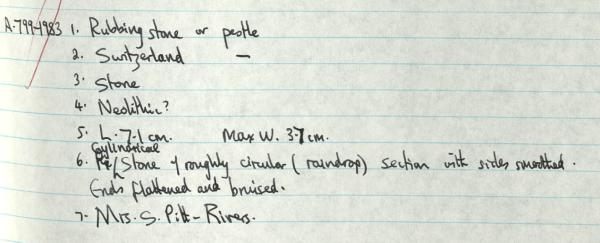 A.799-1983 1. Rubbing stone or pestle
2. Switzerland —
3. Stone
4. Neolithic?
5. L. 7.1 cm. Max W. 3.7 cm.
Cylindrical
6. Stone of roughly circular (raindrop) section with sides smoothed.
Ends flattened and bruised.
7. Mrs. S. Pitt-Rivers.